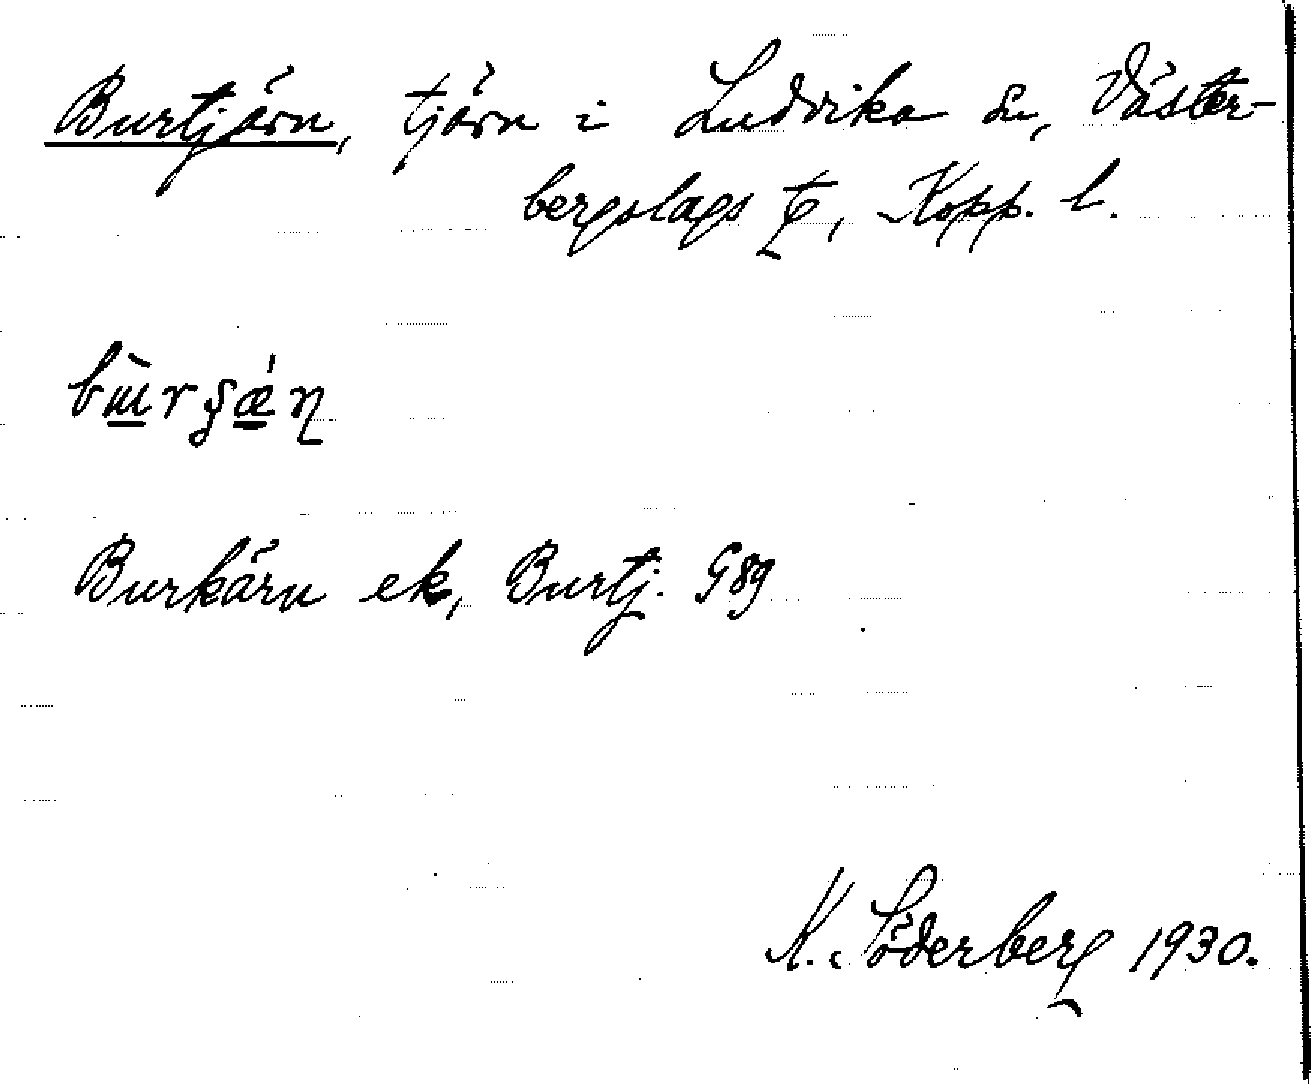 Burtjärn, tjärn i Ludvika sn, Väster-
bergslags tg, Kopp. l.
bɯ̀rʂǽɳ
Burkärn ek, Burtj. G89
K. Söderberg 1930.